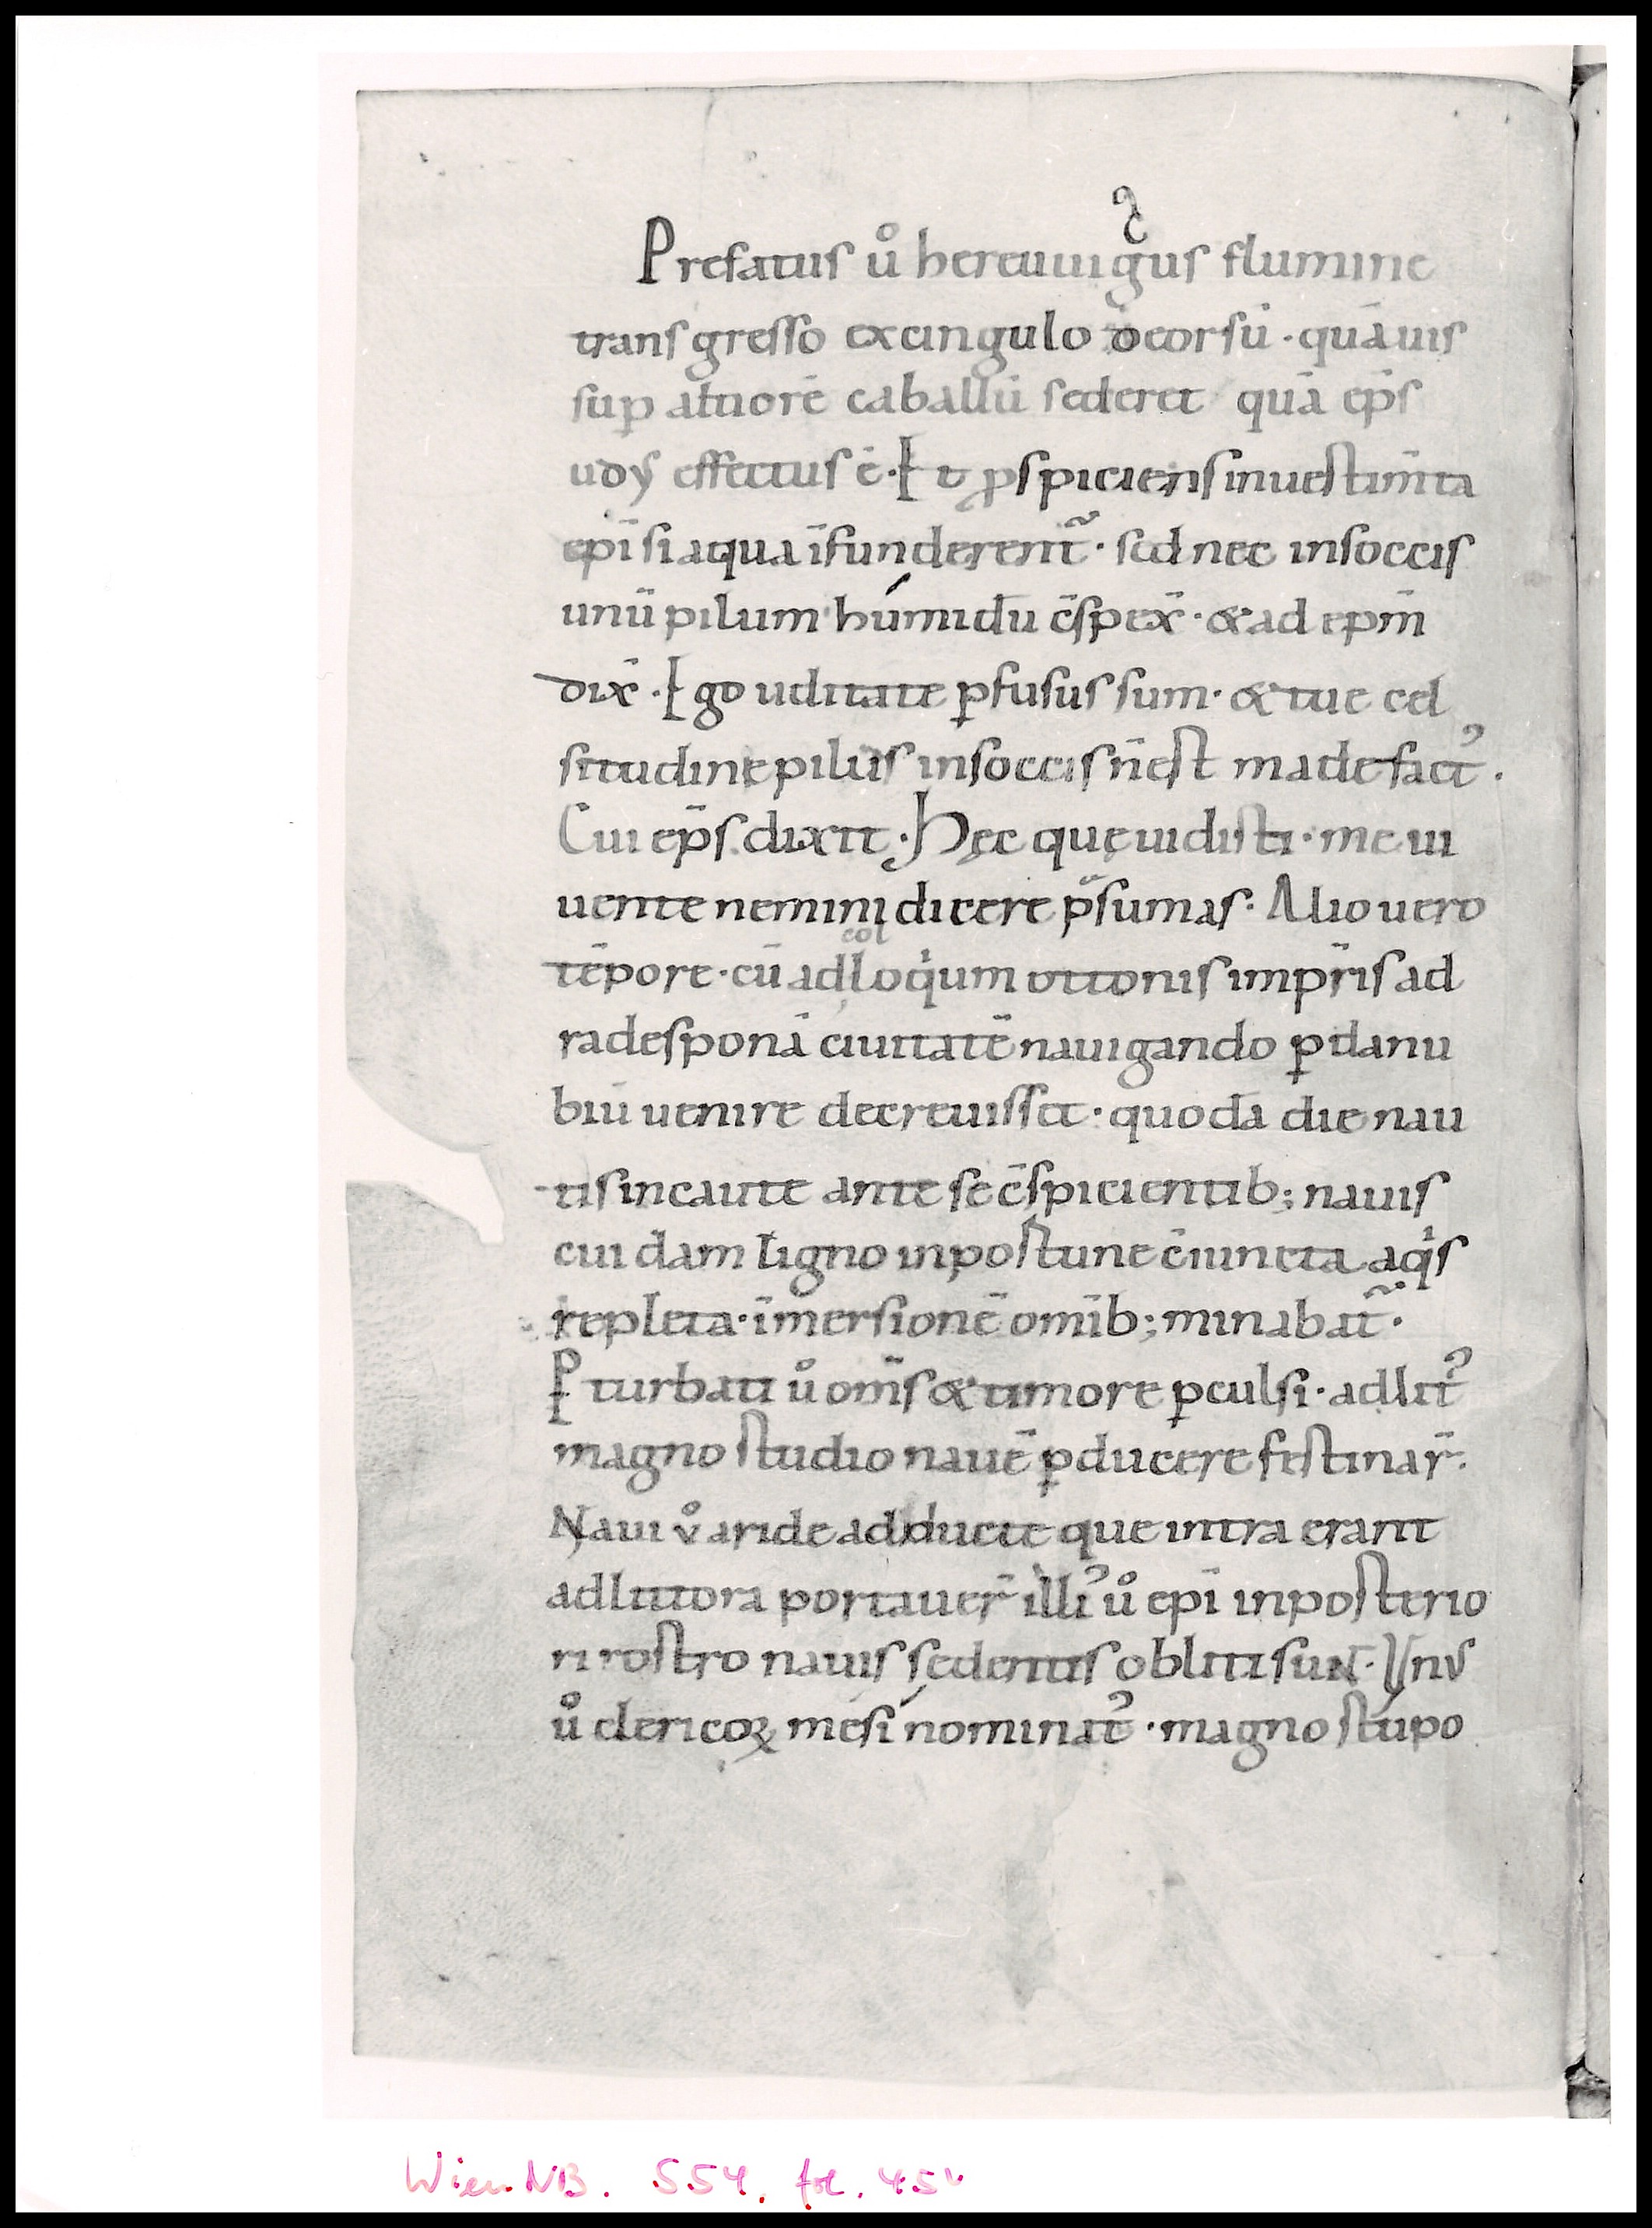 Prefatus uͦ hereuuigus flumine
transgresso excingulo deorsū · quāuis
suꝑ altiorē caballū sederet quā ep̄s
udus effectus ē · Et ꝓspiciens inuestim̄ta
ep̄i si aqua īfunderent᷒ · sed nec insoccis
unū pilum húmidū c̄spex̄ · & ad ep̄m
dix̄ · Ego uditate ꝑfusus sum · & tue cel
situdine pilus insoccis n̄est madefactꝰ .
Cui ep̄s dixit · Hęc quę uidisti · me ui
uente nemini dicere p̄sumas · Alio uero
tēpore · cū ad colloqͥum ottonis imp̄ris ad
radesponā ciuitatē nauigando ꝑ danu
biū uenire decreuisset · quodā die nau
tis incaute ante se c̄spicientib; nauis
cuidam ligno inpostune c̄iuncta aqͥs
repleta · īmersionē omīb; minabat᷒ ·
Ꝑturbati uͦ om̄s & timore ꝑculsi · ad litꝰ
magno studio nauē ꝑducere festinar̄ .
Naui vͦ aride adducte que intra erant
ad littora portauer̄ illiꝰ uͦ ep̄i inposterio
ri rostro nauis sedentis obliti suNt · Vnus
uͦ clericoꝝ mesínominatꝰ · magno stupo
Wien NB. 554, fol. 45v